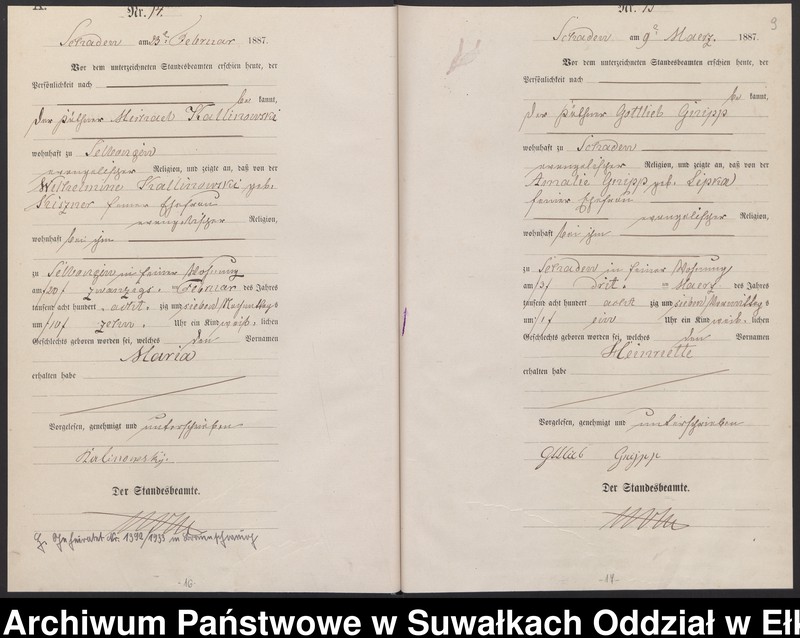 A.
Nr. 14.
Schaden am 23 ten Februar 1887.
Vor dem unterzeichneten Standesbeamten erschien heute, der
Persönlichkeit nach
be kannt,
der Käthner Kallinowski
wohnhaft zu
evangelischer Religion, und zeigte an, daß von der
Wilhelmine Kallinowski geb.
seiner Ehefrau
evangelischer Religion,
wohnhaft bei ihm
zu in seiner Wohnung
am /20/ zwanzigs. Februar des Jahres
tausend acht hundert acht zig und sieben Nachmittags
um /10/ zehn Uhr ein Kind weib lichen
Geschlechts geboren worden sei, welches den Vornamen
Maria
erhalten habe
Vorgelesen, genehmigt und unterschrieben
Kalinowsky.
Der Standesbeamte.
Geheiratet Nr. 1392/1933 in Braunschweig
-16-
Nr. 15
9
Schaden am 9 ten Maerz. 1887.
Vor dem unterzeichneten Standesbeamten erschien heute, der
Persönlichkeit nach
be kannt,
der Käthner Gottlieb Gripp
wohnhaft zu Schaden
evangelischer Religion, und zeigte an, daß von der
Amalie Gripp geb. Lipka
seiner Ehefrau
evangelischer Religion,
wohnhaft bei ihm
zu Schaden in seiner Wohnung
am /3/ Drit. Maerz des Jahres
tausend acht hundert acht zig und sieben Vormittags
um /1/ ein Uhr ein Kind weib. lichen
Geschlechts geboren worden sei, welches den Vornamen
Heinriette
erhalten habe
Vorgelesen, genehmigt und unterschrieben
Gripp
Der Standesbeamte.
-17-
Archiwum Państwowe w Suwałkach Oddział w Eł